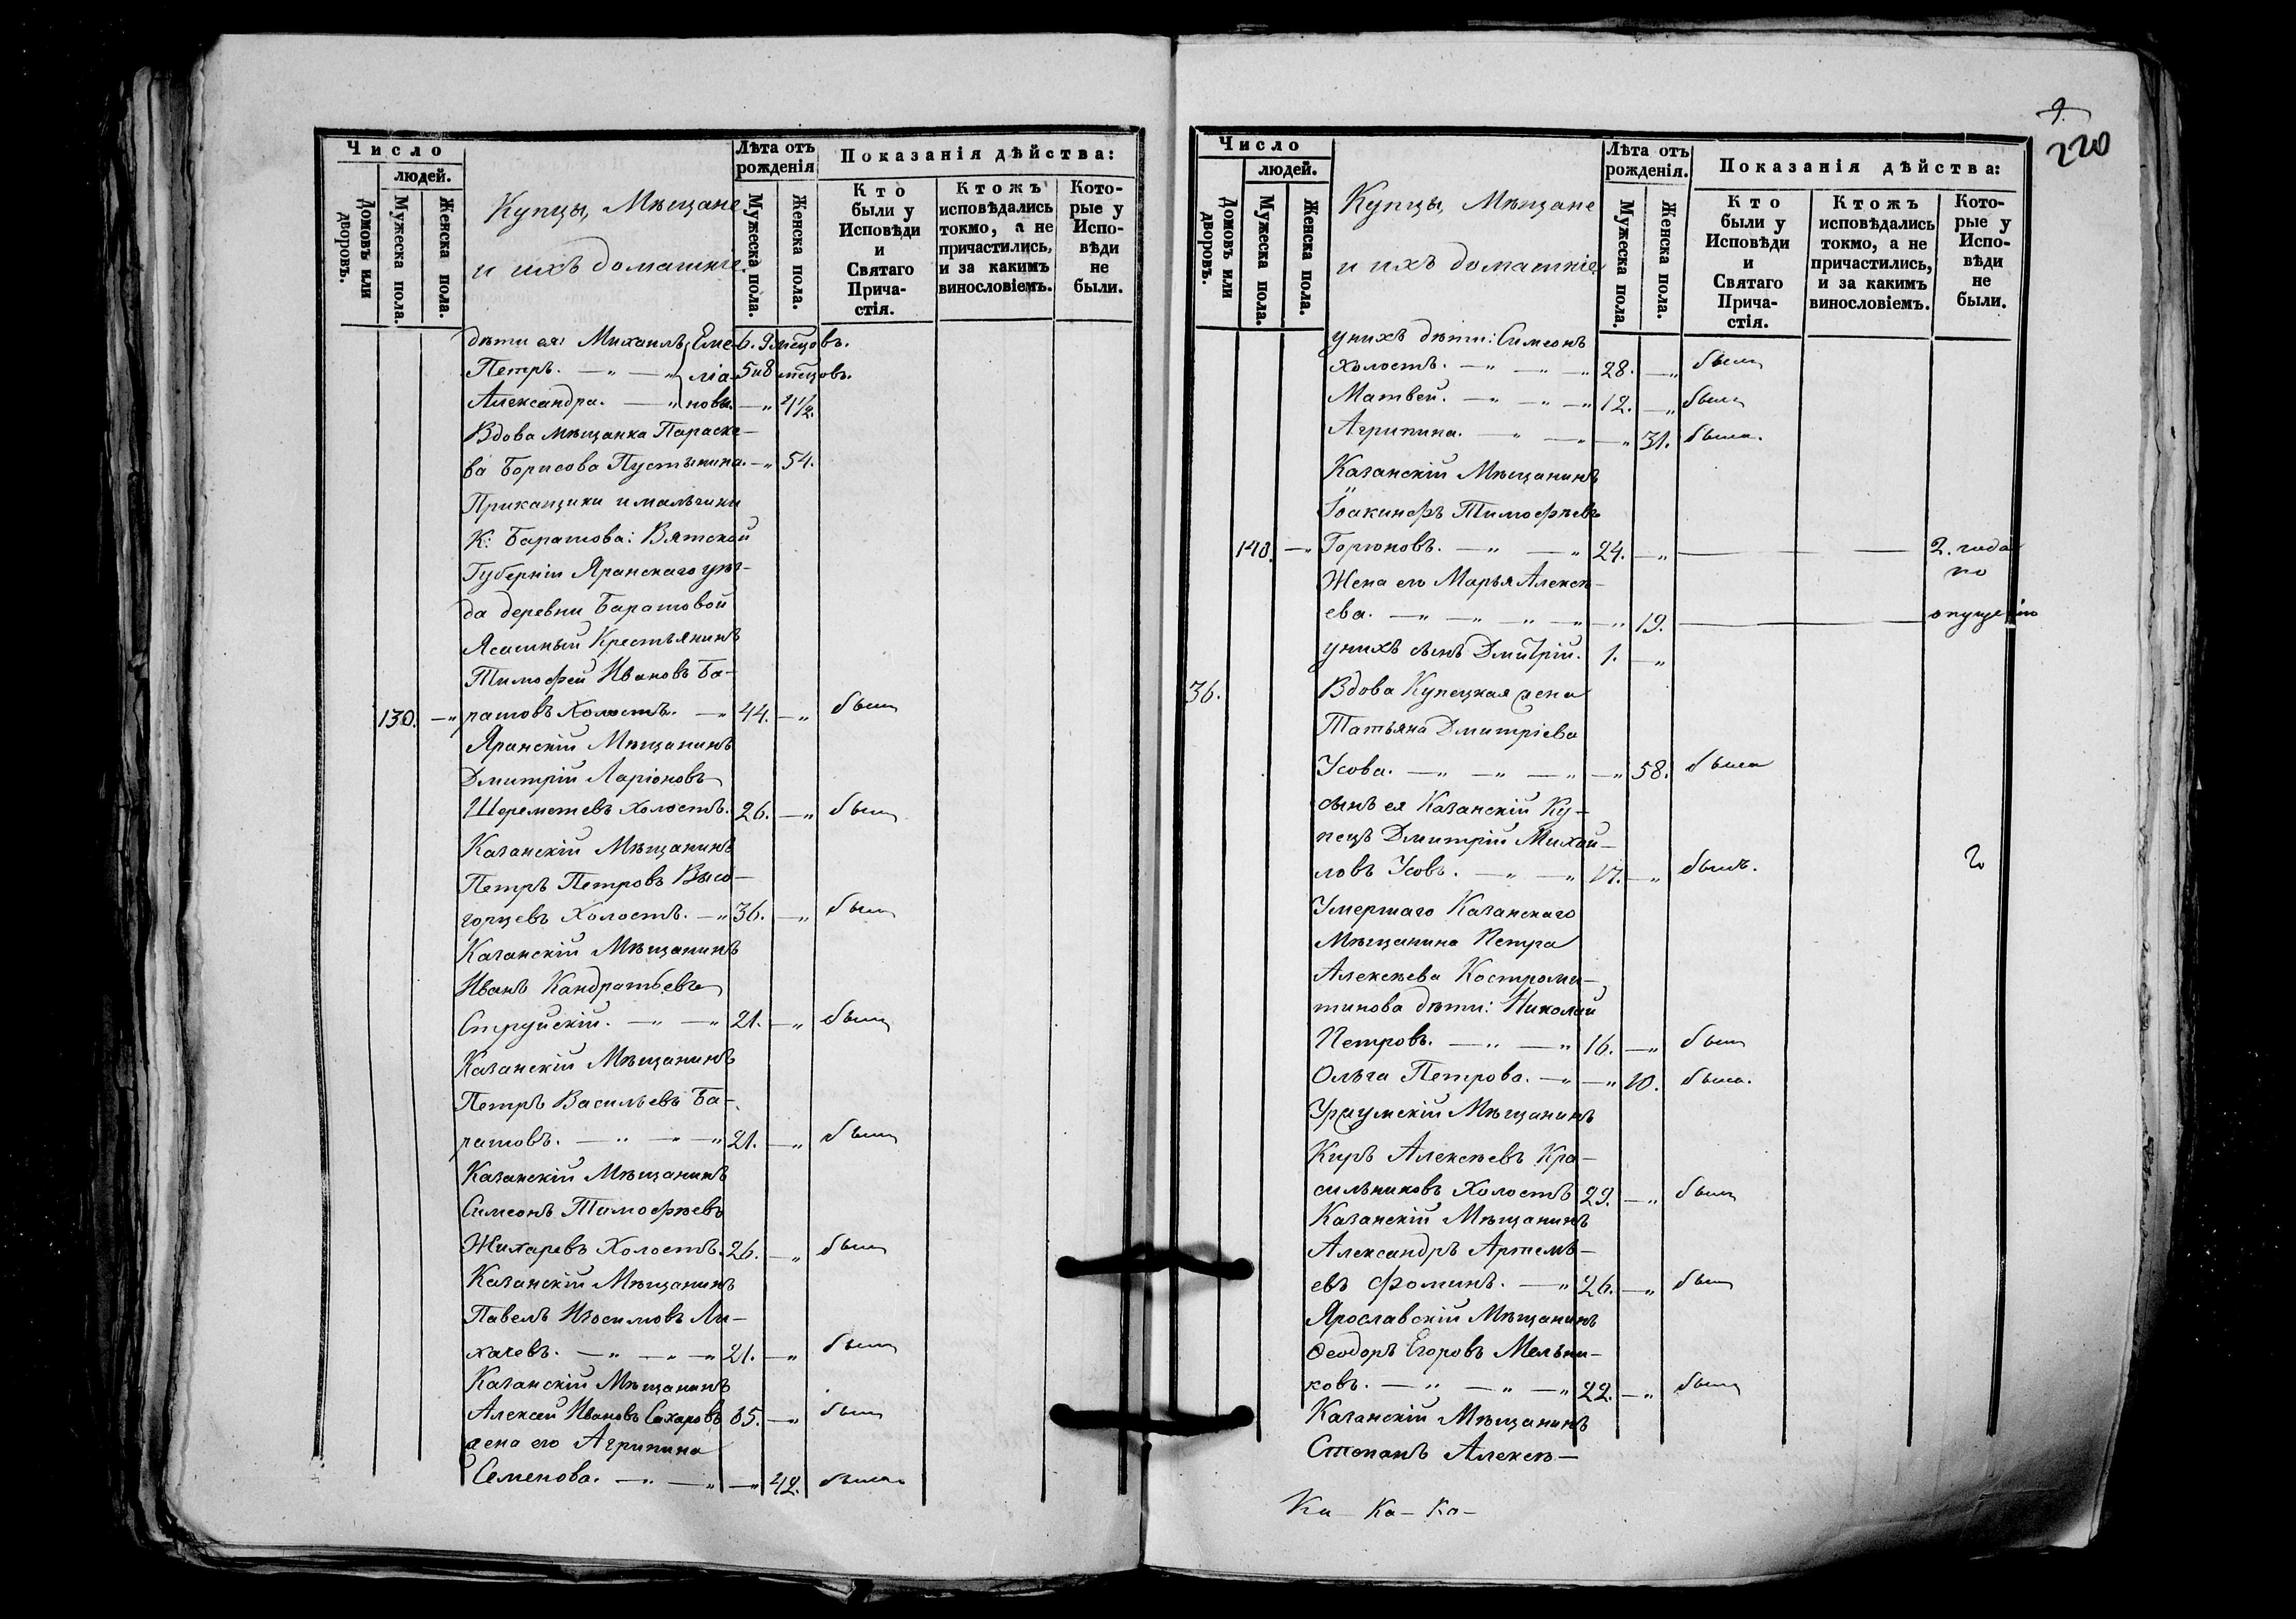 Число
людей.
Домовъ или дворовъ.
Мужеска пола.
Женска пола.
Купцы, Мѣщане
и ихъ домашніе.
Лѣта отъ рожденія
Мужеска пола.
Женска пола.
Показанія дѣйства:
Кто были у Исповѣди и Святаго Прича-стія.
Ктожъ исповѣдались токмо, а не причастились, и за какимъ винословіемъ.
Кото-рые у Испо-вѣди не были.
дѣти ея: Михаилъ Еме- 6. 9 мѣсцовъ.
Петръ. — „ — „ ліа- 5 и 8 мѣсцовъ.
Александра. — „ новы. — „ 4 1/2.
Вдова мѣщанка Параске-
ва Борисова Пустынина. — „ 54.
Прикащики и мальчики
К: Баратова: Вятской
Губерніи Яранскаго уѣз-
да деревни Баратовой
Ясашный Крестьянинъ
Тимофей Ивановъ Ба-
130. — „ ратовъ Холостъ. — „ 44. — „ былъ
Яранскій Мѣщанинъ
Дмитрій Ларіоновъ
Шереметевъ Холостъ. 26. — „ былъ
Казанскій Мѣщанинъ
Петръ Петровъ Высо-
горцевъ Холостъ. — „ 36. — „ былъ
Казанскій Мѣщанинъ
Иванъ Кандратьевъ
Струйскій. — „ — „ 21. — „ былъ
Казанскій Мѣщанинъ
Петръ Васильевъ Ба-
ратовъ. — „ — „ 21. — „ былъ
Казанскій Мѣщанинъ
Симеонъ Тимофѣевъ
Жихаревъ Холостъ. 26. — „ былъ
Казанскій Мѣщанинъ
Павелъ Изосимовъ Ли-
хачевъ. — „ — „ — „ 21. — „ былъ
Казанскій Мѣщанинъ
Алексей Ивановъ Сахаровъ 65. — „ былъ
жена его Агрипина
Семенова. — „ — „ — „ 42. была
9.
220
Число
людей.
Домовъ или дворовъ.
Мужеска пола.
Женска пола.
Купцы, Мѣщане
и ихъ домашніе
Лѣта отъ рожденія.
Мужеска пола.
Женска пола.
Показанія дѣйства:
Кто были у Исповѣди и Святаго Прича-стія.
Ктожъ исповѣдались токмо, а не причастились, и за какимъ винословіемъ.
Кото-рые у Испо-вѣди не были.
у нихъ дѣти: Симеонъ
холостъ. — „ — „ 28. — „ былъ
Матвей. — „ — „ 12. — „ былъ
Агрипина. — „ — „ — „ 31. была.
Казанскій Мѣщанинъ
Іоакинфъ Тимофѣевъ
140. — „ Горюновъ. — „ — „ 24. — „ 2. года
по
Жена его Марья Алексѣ-
ева. — „ — „ — „ — „ 19. опущенію
у нихъ сынъ Дмитрій. 1. — „
36. Вдова Купецкая жена
Татьяна Дмитріева
Усова. — „ — „ — „ — „ 58. была
сынъ ея Казанскій Ку-
пецъ Дмитрій Михай-
ловъ Усовъ. — „ — „ 17. — „ былъ.
Умершаго Казанскаго
Мѣщанина Петра
Алексѣева Костроми-
тинова дѣти: Николай
Петровъ. — „ — „ 16. — „ былъ
Ольга Петрова. — „ — „ 10. была.
Уржумскій Мѣщанинъ
Киръ Алексѣевъ Кра-
сильниковъ Холостъ 29. — „ былъ
Казанскій Мѣщанинъ
Александръ Артемь-
евъ Фоминъ. — „ 26. — „ былъ
Ярославскій Мѣщанинъ
Ѳеодоръ Егоровъ Мельни-
ковъ. — „ — „ — „ 22. — „ былъ
Казанскій Мѣщанинъ
Степанъ Алексѣ-
Ка- Ка- Ка-